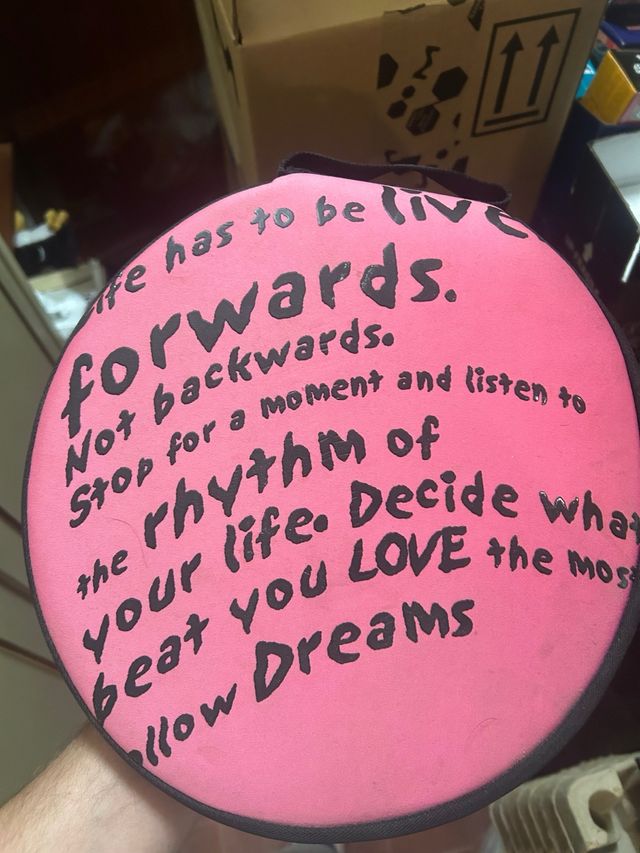 ife has to be live
forwards.
Not backwards.
Stop for a moment and listen to
the rhythm of
your life. Decide what
beat you LOVE the most
ollow Dreams